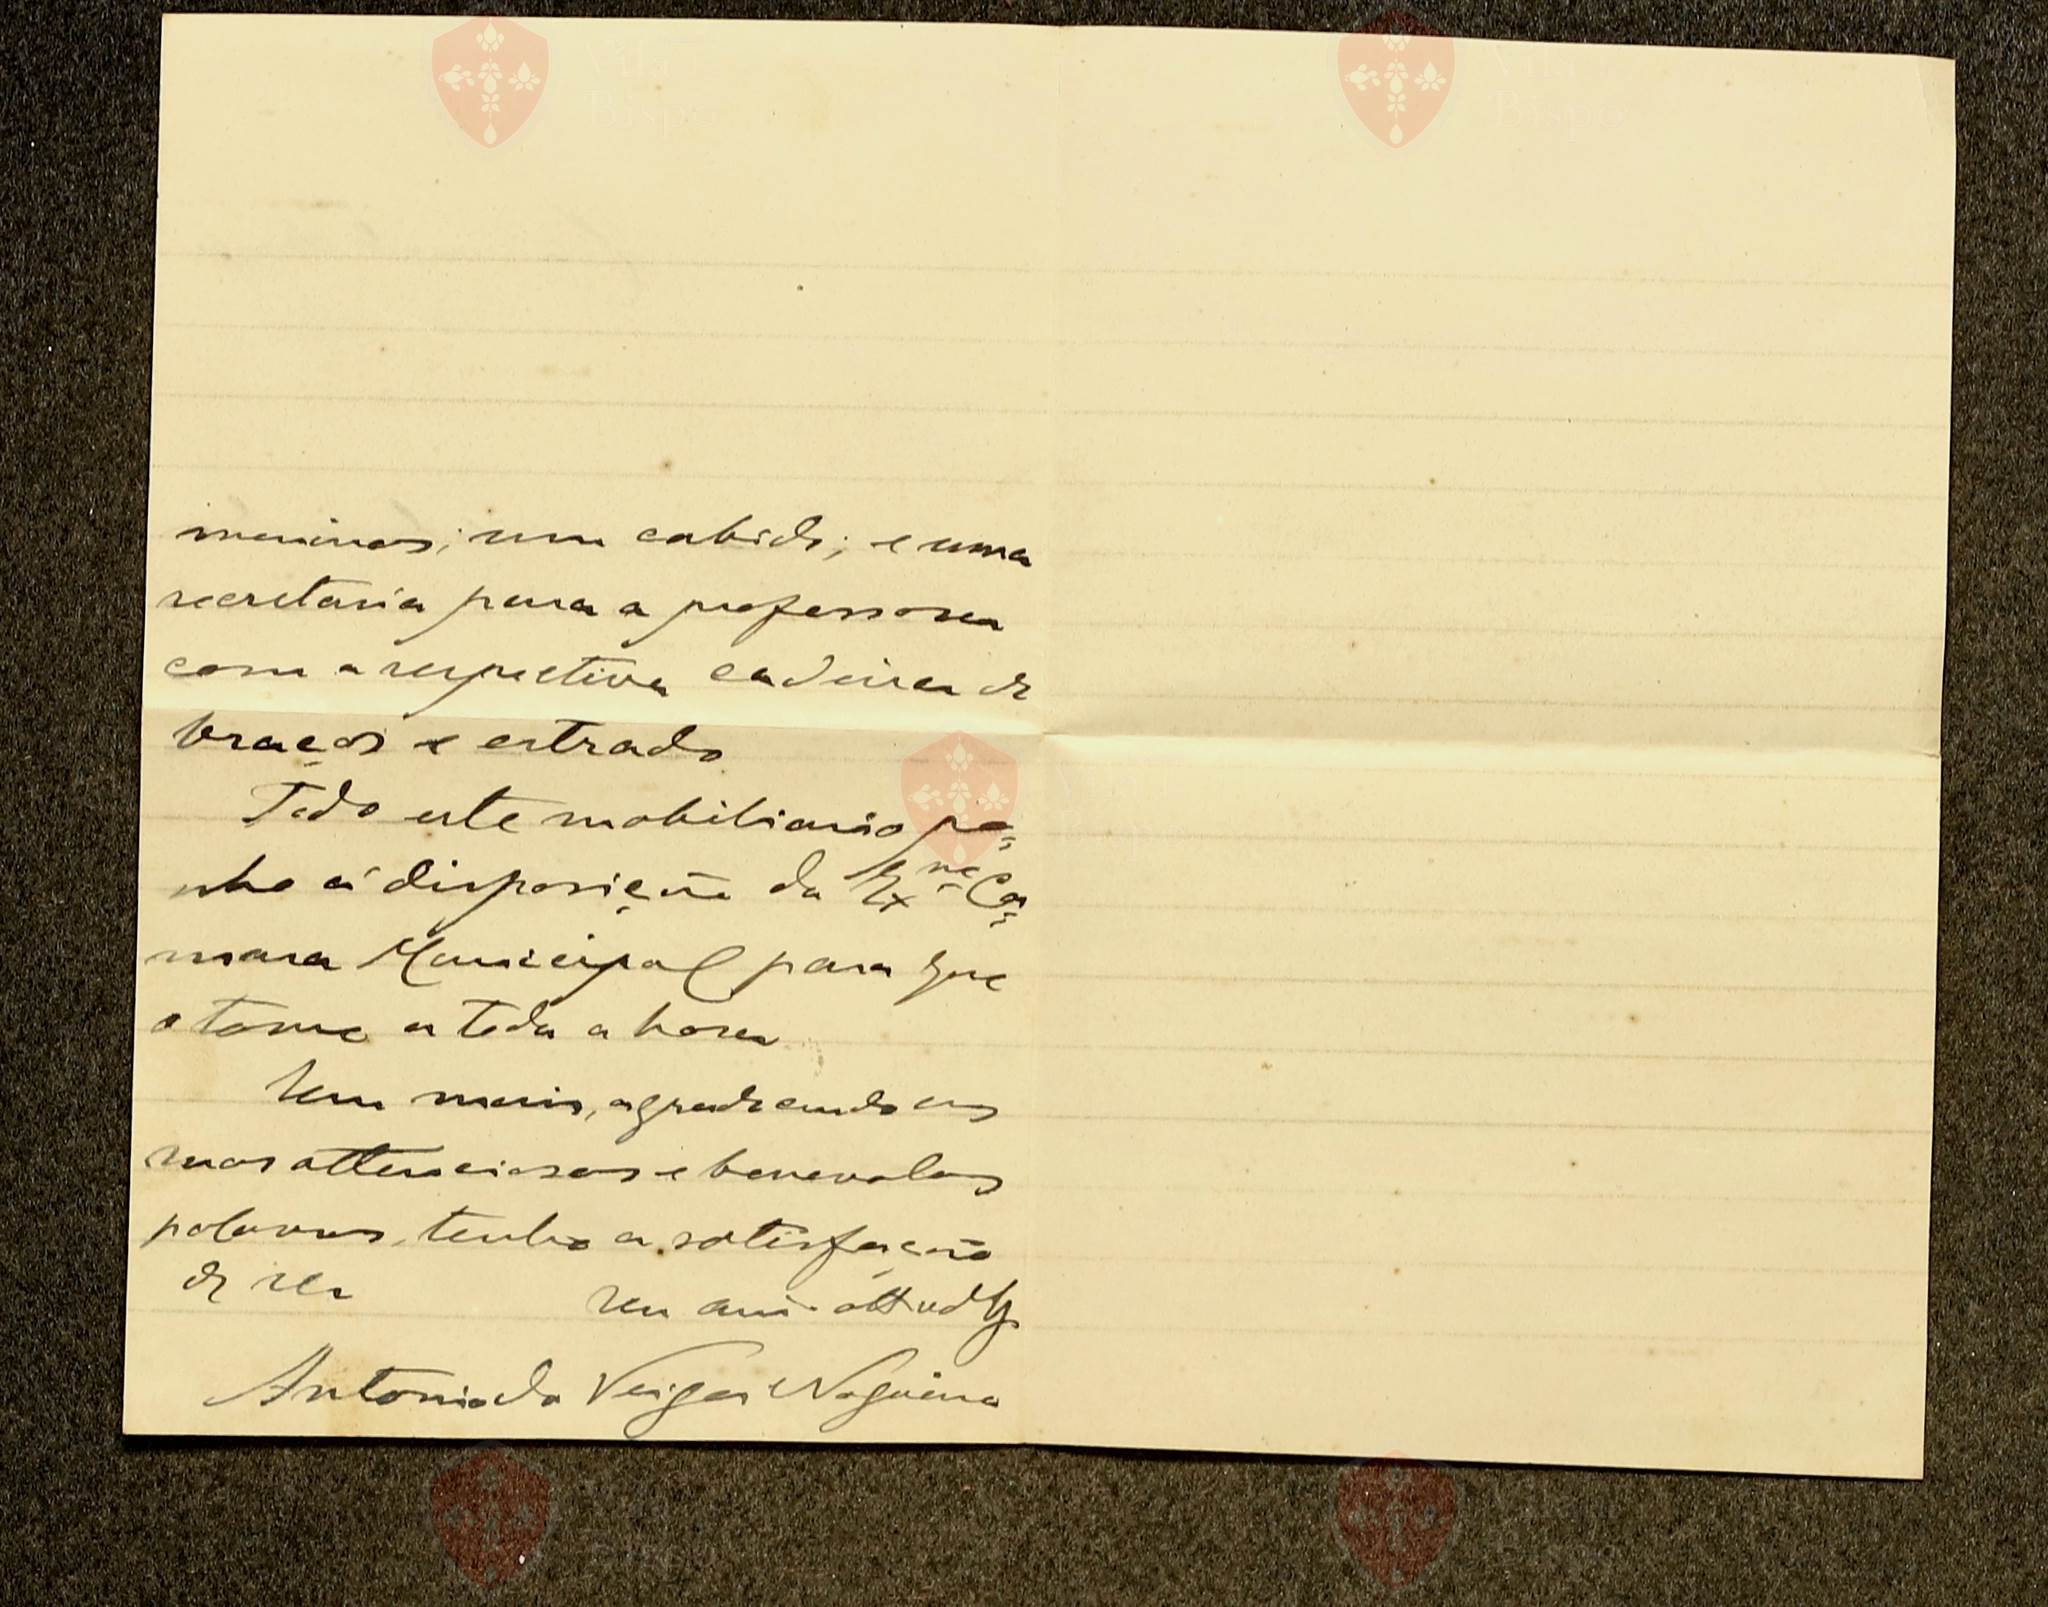 meninas; um cabide; e uma
secretaria para a professora
com a respectiva cadeira de
braços e estrado
Todo este mobiliario po=
nho á disposição da Ex.ma Ca=
mara Municipal para que
o tome a toda a hora
Sem mais, agradecendo as
suas attenciosas e benevolas
palavras, tenho a satisfação
de ser
seu am.
Antonio da Veiga Nogueira
Vila
Bispo
Vila
Bispo